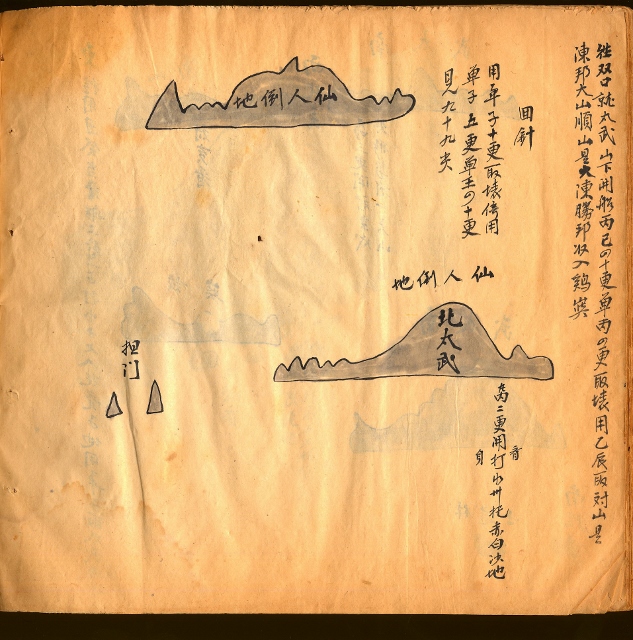 往双口就太武山下開船丙巳四十更單丙四更取㙲用乙辰取対山是
陳邦大山順山是大陳勝邦收入鷄
回針
用單子十更取㙲倚用
單子五更單壬四十更
見九十九尖
仙人倒地
仙人倒地
北太武
二更開打水卅托赤白沙地
担门